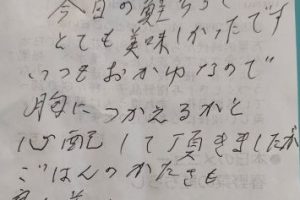 今日の鮭ちらし
とても美味しかったです
いつもおかゆなので
胸につかえるかと
心配して頂きましたが
ごはんのかたさも